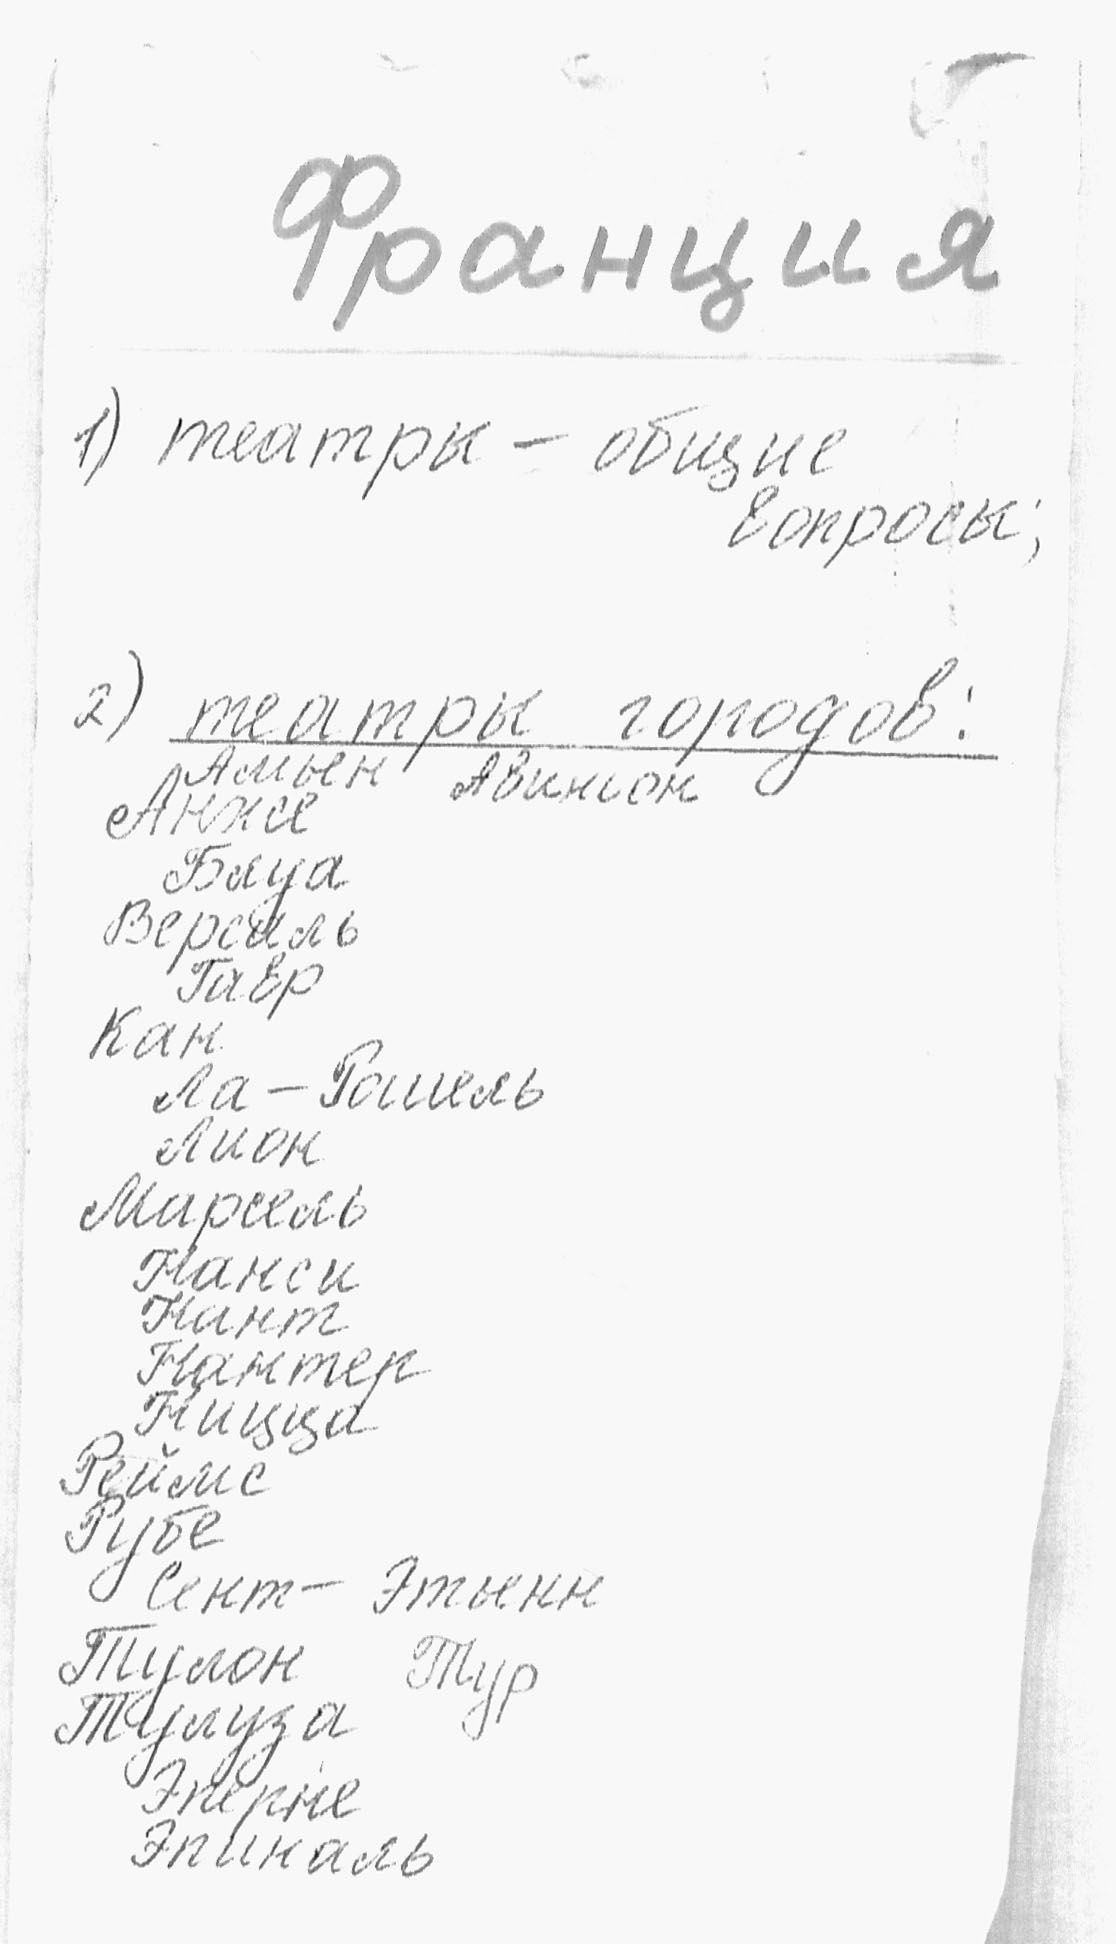 Франция
1) театры - общие
вопросы;
2) театры городов:
Амьен Авиньон
Анже
Блуа
Версаль
Гавр
Кан
Ла-Рошель
Лион
Марсель
Нанси
Нант
Нантер
Ницца
Реймс
Рубе
Сент-Этьенн
Тулон Тур
Тулуза
Эперне
Эпиналь